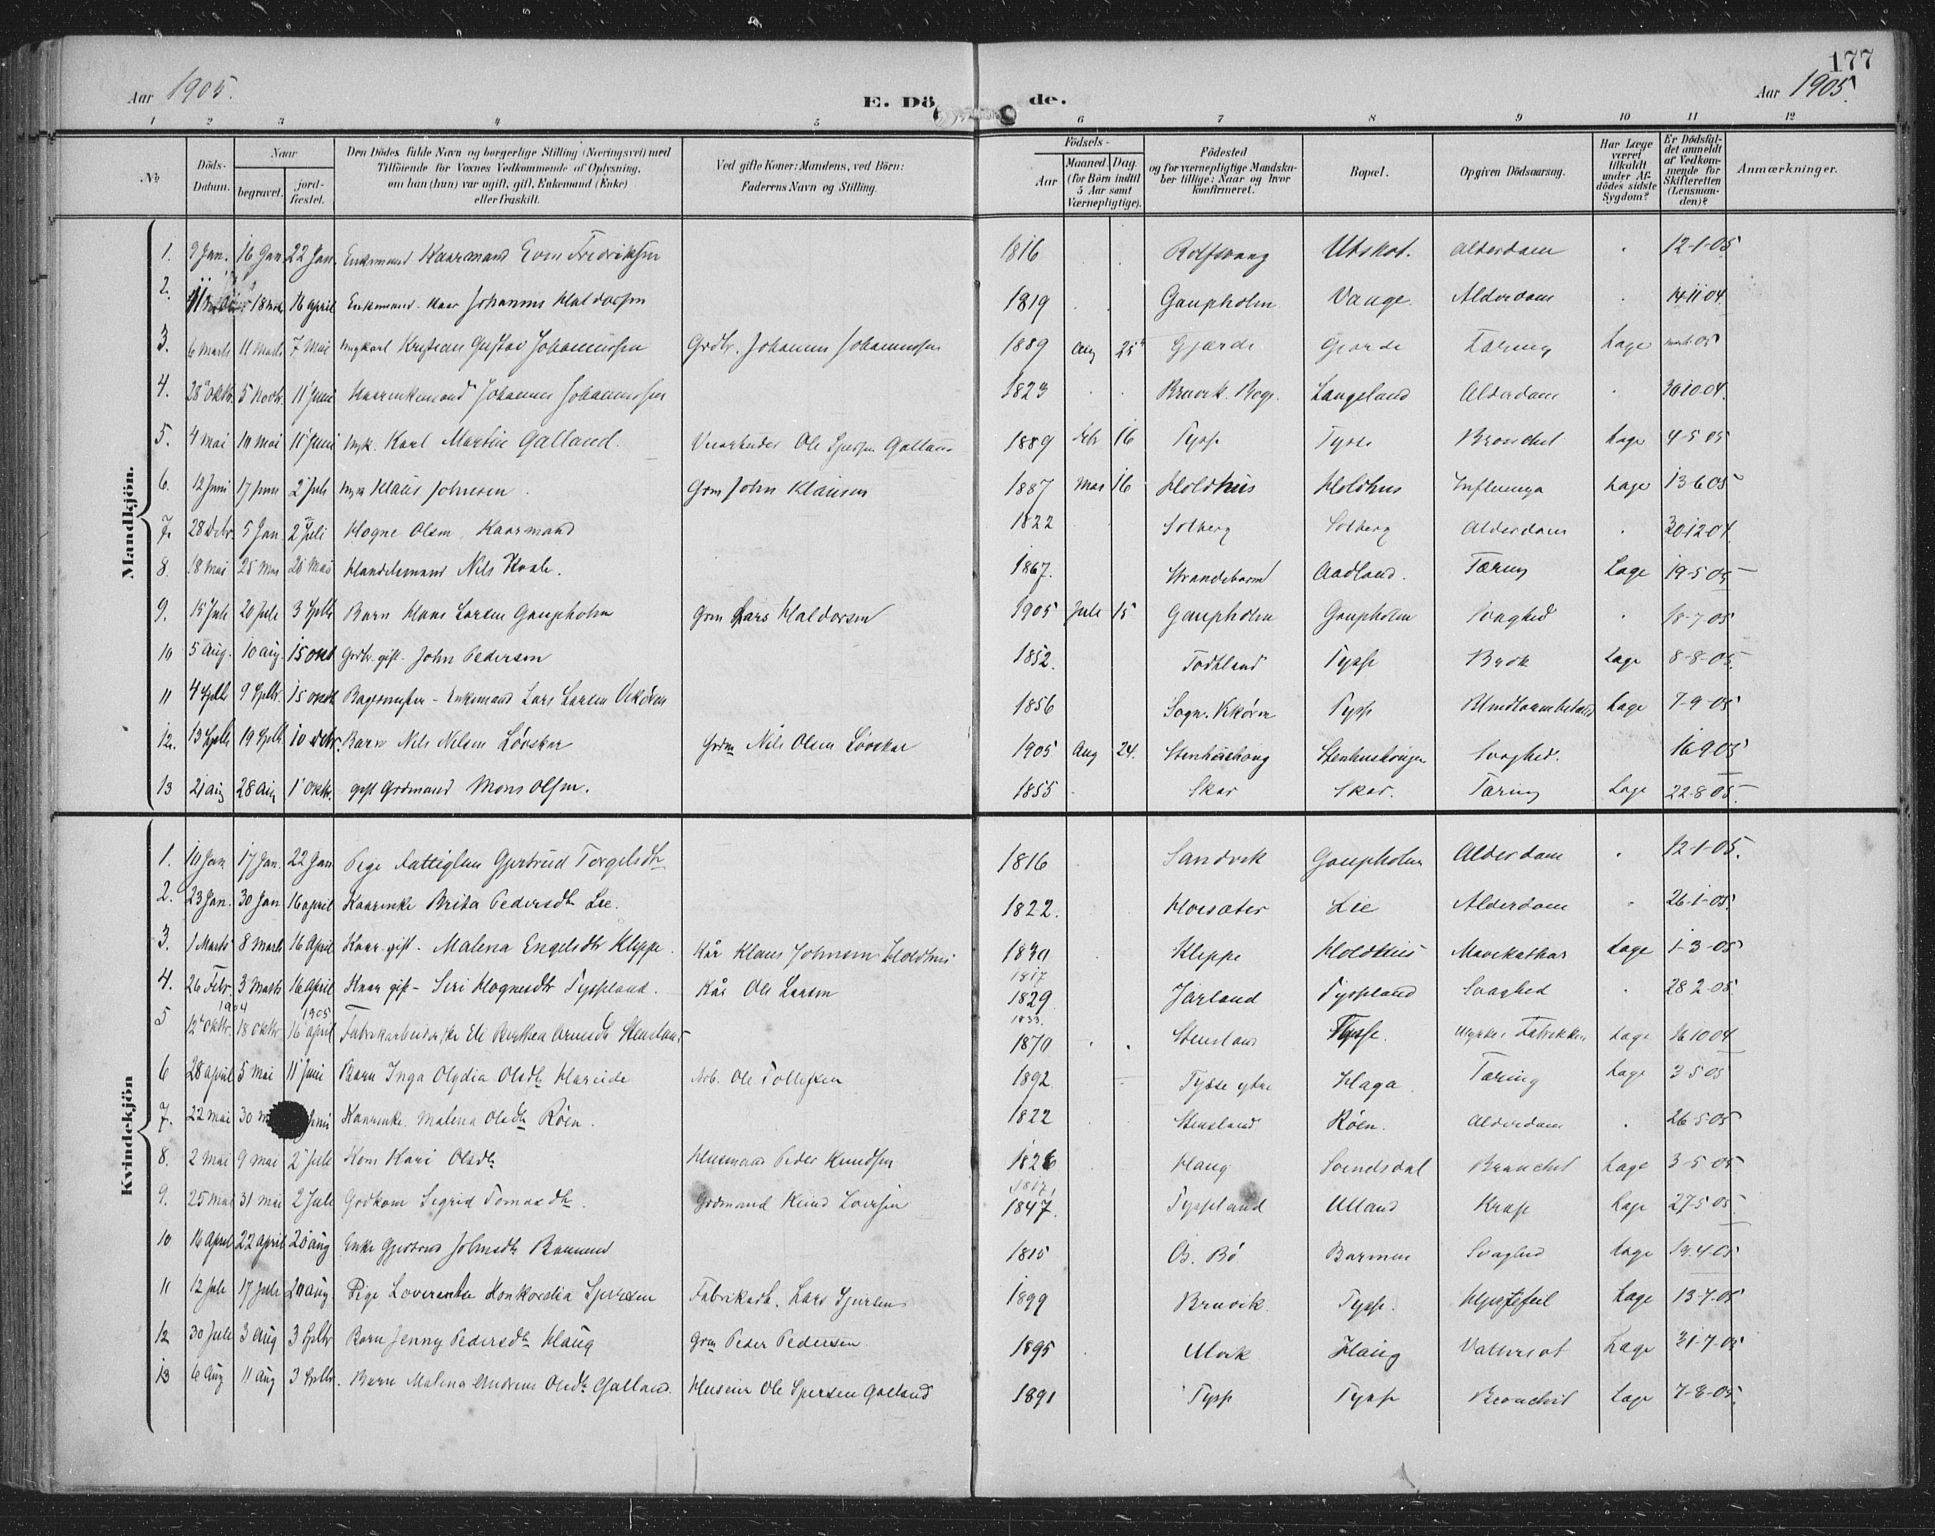 177
Aar 1905. E. Dö de. Aar 1905.
1 2 3 4 5 6 7 8 9 10 11 12
No
Döds-Datum.
Naar
begravet.
jordfæstet.
Den Dödes fulde Navn og borgerlige Stilling (Næringsvei) med
Tilföiende for Voxnes Vedkommende af Oplysning,
om han (hun) var ugift, gift, Enkemand (Enke)
eller fraskilt.
Ved gifte Koner: Mandens, ved Börn:
Faderens Navn og Stilling.
Födsels-
Aar
Maaned. Dag.
(for Börn indtil
5 Aar samt
Værnepligtige).
Födested
og for værnepligtige Mandskaber tillige: Naar og hvor
konfirmeret.
Bopæl.
Opgiven Dödsaarsag.
Har Læge
været
tilkaldt
under Afdödes sidste
Sygdom?
Er Dödsfaldet anmeldt
af Vedkommende for
Skifteretten
(Lensmanden)?
Anmærkninger.
Mandkjön.
1. 9 Jan. 16 Jan 22 Jan Enkemand Kaarmand Even Fredriksen 1816 Rolfsvaag Utskot. Alderdom 12-1-05
2. 18 16 april Enkemand. Kaar Johannes Haldorsen 1819 Gaupholm Vange. Alderdom 14 11 04
3. 6 Marts 11 Marts 7 Mai Ungkarl Kristian Gustav Johannessen Grdbr. Johannes Johannessen 1889 Aug 25 Gjærde Gjerde Tæring Læge 05
4. 28 oktr. 5 Novbr. 11 Juni Kaarenkemand Johannes Johannessen 1823 Bruvik. Langeland Alderdom 30 10 04.
5. 4 mai 10 mai 11 Juni ungk. Karl Martin Galland. Ole Sjursen Galland 1889 Febr 16 Tysse Tysse Bronchit Læge 4-5 05
6. 12 Juni 17 Juni 2 Juli ungk Klaus Johnsen. Grm John Klausen 1887 Mar 16 Holdhus Holdhus Influenza Læge 13-6 05
7. 28 Debr. 5 Jan 2 Juli Hogne Olsen, Kaarmand 1822 Solberg Solberg Alderdom 30-12 04
8. 18 mai 25 Mai 28 Mai Handelsmand Nils Hvale. 1867. Strandebarm Aadland. Tæring Læge 19-5 05
9. 15 Juli 20 Juli 3 Septb Barn Hans Larsen Gaupholm Grm Lars Haldorsen 1905 Juli 15 Gaupholm Gaupholm Svaghed 18-7-05
10 5 Aug. 10 aug. 15 okt Grdbr. gift. John Pedersen 1852. Todtland Tysse Brok Læge 8-8-05
11 4 Septb 9 Septbr 15 oktb Bagermester - Enkemand Lars Larsen 1856 Sogn. Tysse Læge 7-9-05
12. 13 Septb 19 Septb 10 Debr. Barn Nils Nilsen Løvskar Grdm Nils Olsen Løvskar 1905 Aug 24. Svaghed. 16 9 05
13 21 aug 28 Aug 1 oktr. gift Grdmand Mons Olsen. 1855 Skar Skar. Tæring Læge 22-8 05.
Kvindekjön
1. 10 Jan 17 Jan. 22 Jan Pige Fattiglem Gjertrud Torgelsdtr 1816 Sandvik Gaupholm Alderdom 12-1-05.
2. 23 Jan. 30 Jan 16 april Kaarenke Brita Pedersdtr Lie. 1822. Lie Alderdom 26-1-05
3. 1 Marts 8 Marts 16 April Kaar. gift. Malena Engelsdtr Kleppe. Kår Klaus Johnsen Holdhus 1830 Kleppe Holdhus Mavekathar Læge 1-3-05
4. 26 Febr 3 Marts 16 April Kaar gift - Siri Hognesdtr Tyssland. Kår Ole Larsen 1817 1829 Jarland Tyssland Svaghed 28 2-05
5 1904 12 oktbr 18 oktbr 1905 16 april Fabrikarbeiderske Eli Arnesdtr Stensland 1833. 1870 Stensland Tysse. Læge 16 10 04
6 28 april 5 mai 11 Juni Barn Inga Olydia Olsdtr Hareide Arb. Ole Tollefsen 1892. Tysse ytre Haga. Tæring Læge 3 5 05
7. 22 mai 30 Juni Kaarenke. Malena Olsdtr Røen. 1822 Stensland Røen. Alderdom 26-5-05
8. 2 mai 9 mai 2 Juli Kone Kari Olsdtr Husmand Peder Knudsen 1826 Haug Svendsdal Bronchit Læge 3-5 05
9. 25 Mai 31 mai 2 Juli Grdkone Sigrid Tomasdtr. Grdmand Knud 1817 1847. Tyssland Ulland Læge 27-5 05
10 16 April 22 april 20 aug Enke Gjertrud Johnsdtr 1815 Ø. Bø Svaghed Læge 19.4 05
11 12 Juli 17 Juli 20 aug Pige Konkordia Sjursen Fabrikarb. Lars Sjursen 1899 Bruvik. Tysse. Læge 13-7-05
12 30 Juli 3 Aug 3 Septbr Barn Jenny Pedersdtr Haug Grm Peder Pedersen 1895 Ulvik Haug Vattersot Læge 31-7-05
13 6 Aug 11 Aug 3 Septbr. Barn Malena Olsdtr Galland. Ole Sjursen Galland 1891 Tysse Tysse Bronchit Læge 7-8-05